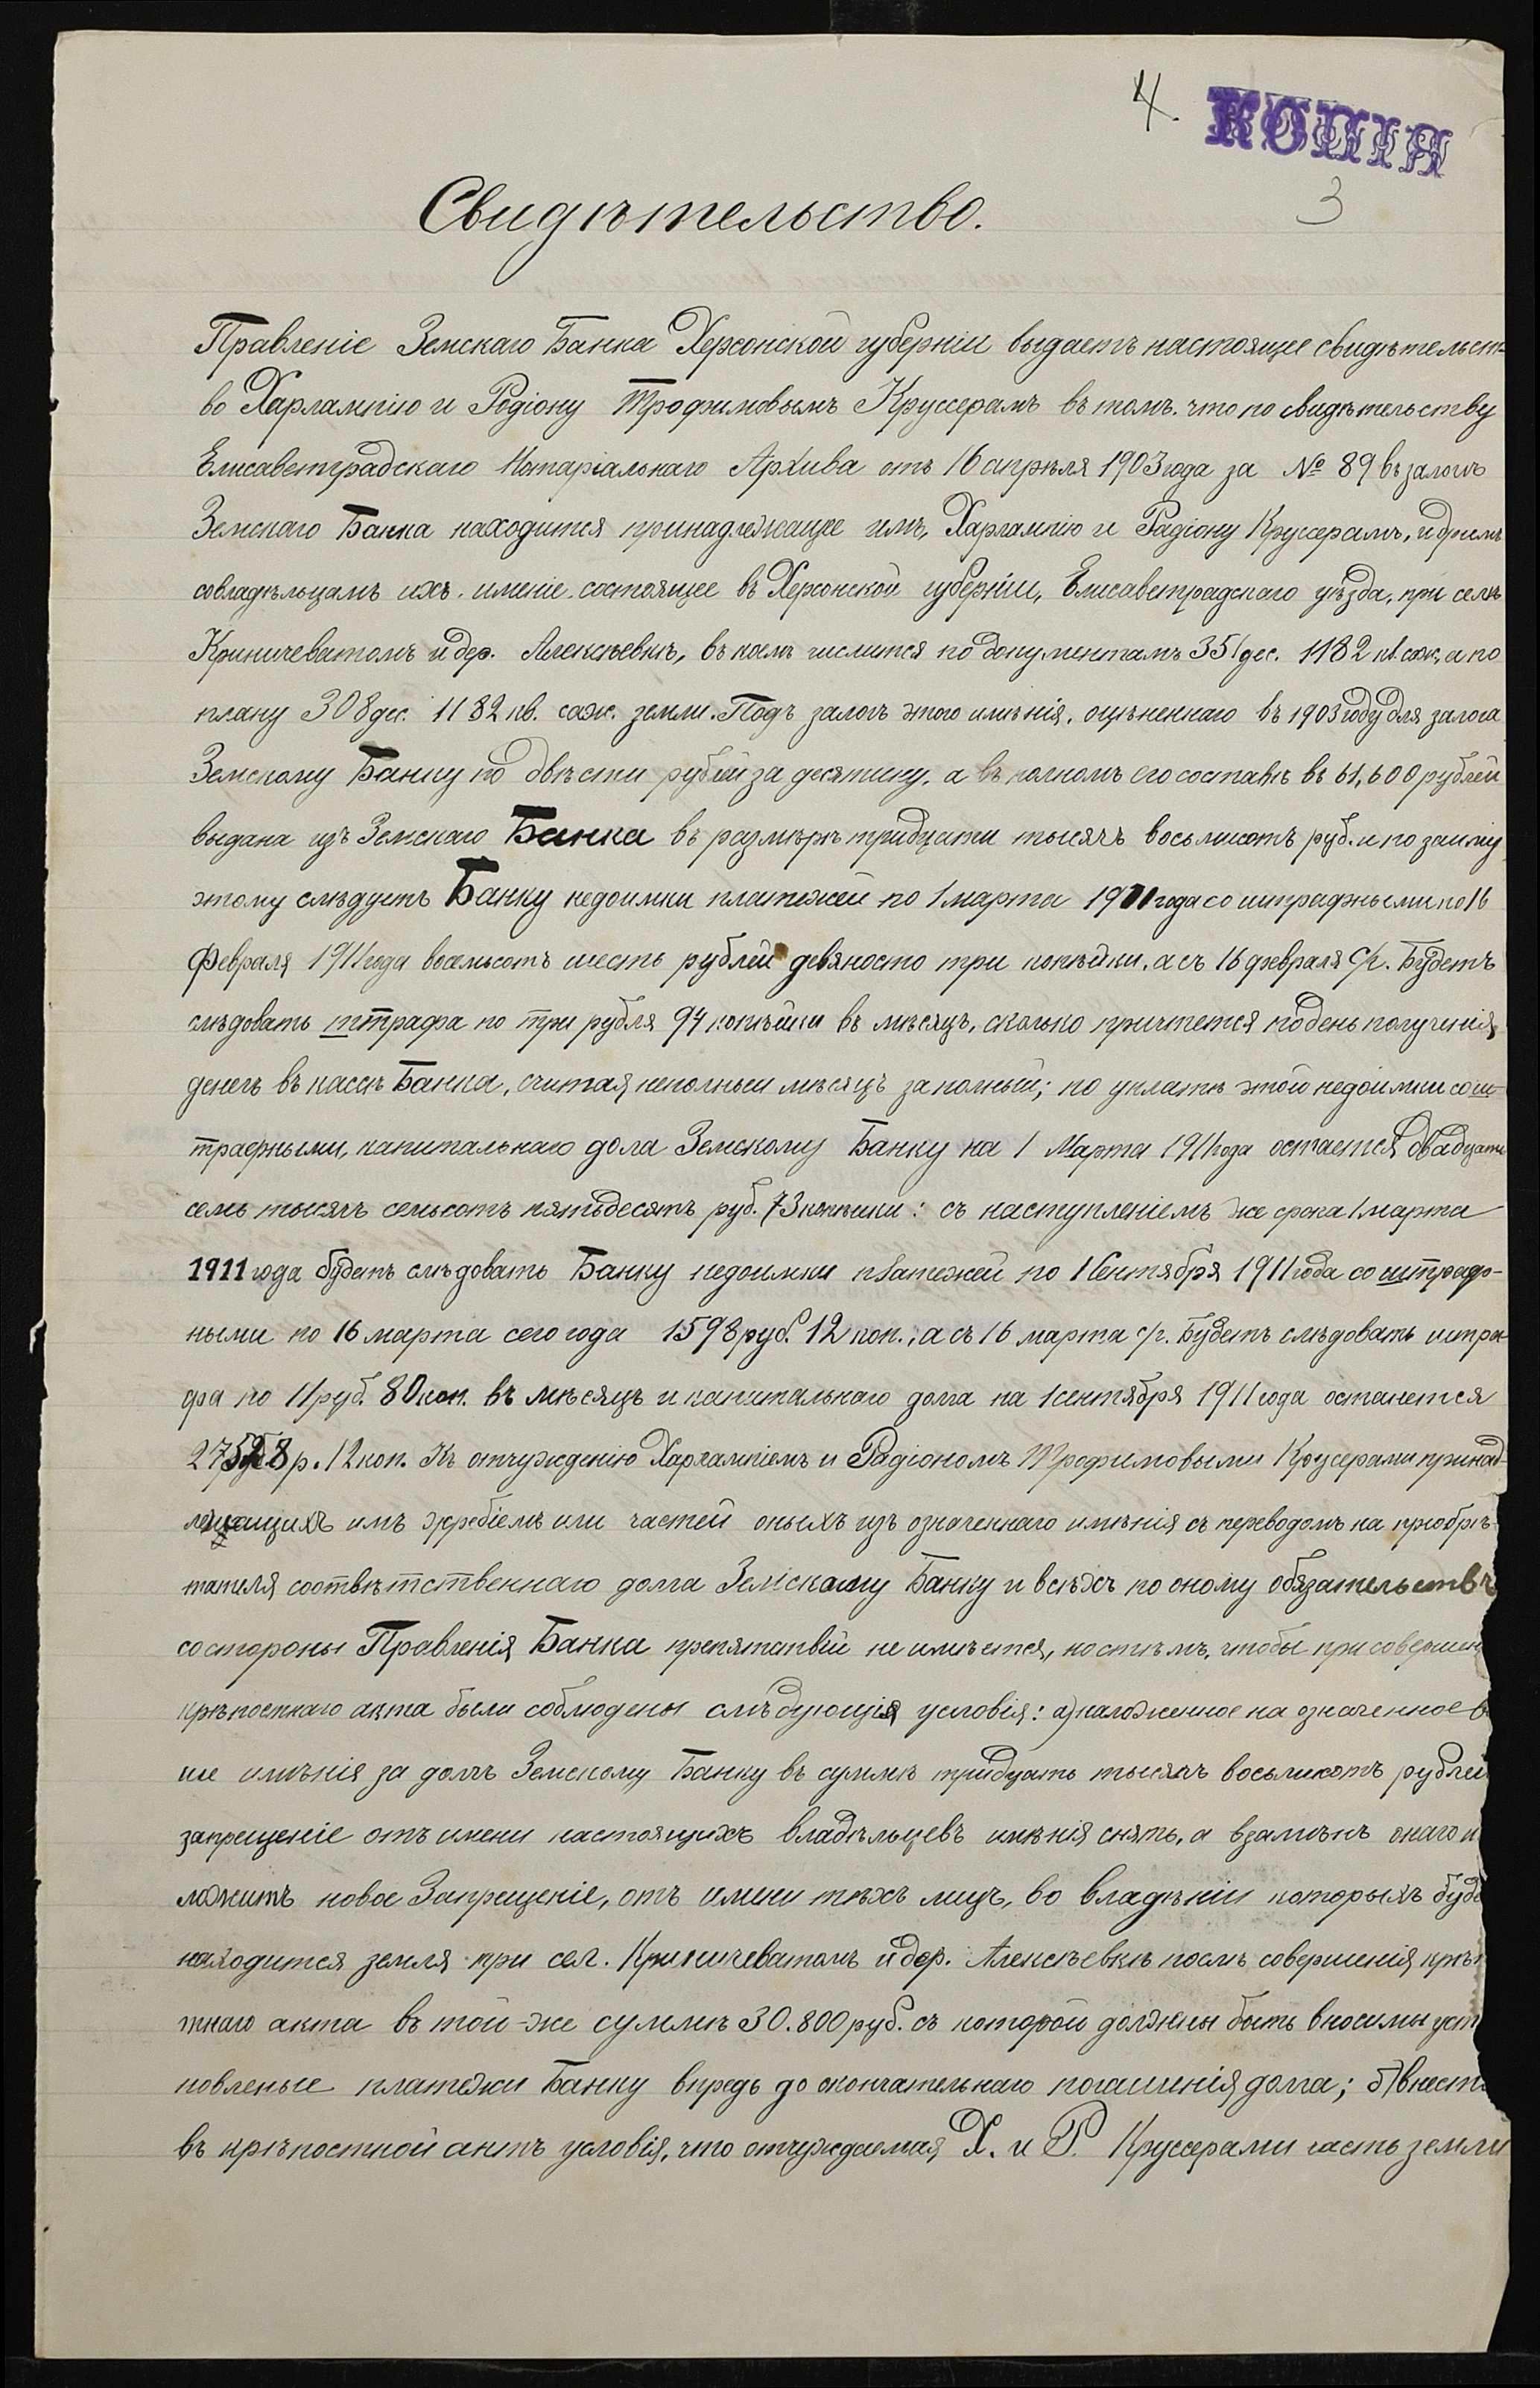 4. КОПІЯ
3
Свидѣтельство.
Правленіе Земскаго Банка Херсонской губерніи выдаетъ настоящее свидѣтельст-
во Харлампію и Родіону Трофимовымъ Круссерамъ въ томъ. что по свидѣтельству
Елисаветградскаго Нотаріальнаго Архива отъ 16 апрѣля 1903 года за № 89 въ залогѣ
Земскаго Банка находится принадлежащее имъ, Харлампію и Радіону Круссерамъ, и
совладѣльцамъ ихъ. имѣніе. состоящее въ Херсонской губерніи, Елисаветградскаго уѣзда, при селѣ
Криничеватомъ и дер. Алексѣевкѣ, въ коемъ числится по документамъ 351 дес. 1182 кв. саж., а по
плану 308 дес. 1182 кв. саж. земли. Подъ залогъ этого имѣнія, оцѣненнаго въ 1903 году для залога
Земскому Банку по двѣсти рублей за десятину, а въ полномъ его составѣ въ 61,600 рублей
выдана изъ Земскаго Банка въ размѣрѣ тридцати тысячъ восьмисотъ руб. и по займу
этому слѣдуетъ Банку недоимки платежей по 1 марта 1911 года со штрафными по 16
Февраля 1911 года восемьсотъ шесть рублей девяносто три копѣйки, а съ 16 февраля с/г. Будетъ
слѣдовать штрафа по три рубля 94 копѣйки въ мѣсяцъ, сколько причтется по день полученія
денегъ въ кассѣ Банка, считая неполный мѣсяцъ за полный; по уплатѣ этой недоимки со ш-
трафными, капитальнаго долга Земскому Банку на 1 Марта 1911 года остается двадцать
семь тысячъ семьсотъ пятьдесятъ руб. 73 копѣйки: съ наступленіемъ же срока 1 марта
1911 года будетъ слѣдовать Банку недоимки платежей по 1 Сентября 1911 года со штраф-
ными по 16 марта сего года 1598 руб. 12 коп., а съ 16 марта с/г. Будетъ слѣдовать штра
фа по 11 руб. 80 коп. въ мѣсяцъ и капитальнаго долга на 1 сентября 1911 года останется
р. 12 коп. Къ отчужденію Харлампіемъ и Радіономъ Трофимовыми Круссерами принад-
лежащихъ имъ жребіемъ или частей оныхъ изъ означеннаго имѣнія съ переводомъ на пріобрѣ-
тателя соотвѣтственнаго долга Земскому Банку и всѣхъ по оному обязательствъ
со стороны Правленія Банка препятствій не имѣется, но стѣмъ, чтобы при совершен
крѣпостнаго акта были соблюдены слѣдующія условія: а) наложенное на означенное в
ше имѣнія за долгъ Земскому Банку въ суммѣ тридцать тысячъ восьмисотъ рублей
запрещеніе отъ имени настоящихъ владѣльцевъ имѣнія снять, а взамѣнъ онаго н
ложить новое Запрещеніе, отъ имени тѣхъ лицъ, во владѣніи которыхъ буде
находится земля при сел. Криничеватомъ и дер. Алексѣевкѣ послѣ совершенія крѣп
тнаго акта въ той-же суммѣ 30.800 руб. съ которой должны быть вносимы уст
новленые платежи Банку впредь до окончательнаго погашенія долга; б) внести
въ крѣпостной актъ условія, что отчуждаемая Х. и Р. Круссерами часть земли